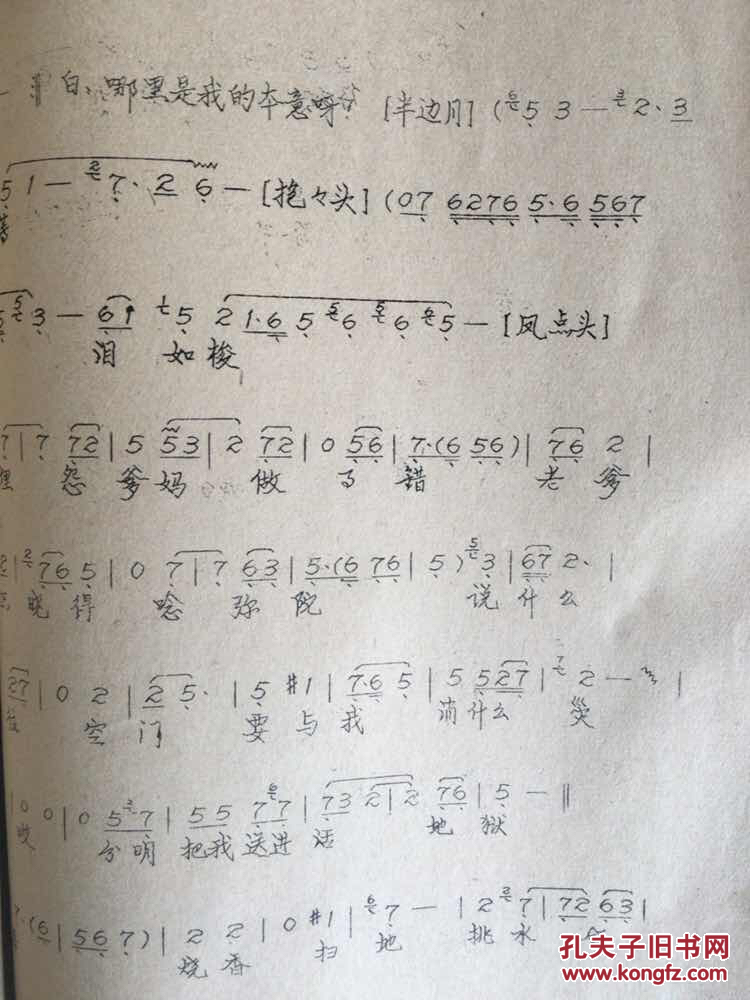 白、哪里是我的本意呀 [半边月] (5 3 — 2. 3
5 1 — 7. 2 6 — [拖々头] (07 6276 5.6 567
3 — 61 5 2 1.6 5 6 6 5 — [凤点头]
泪 如梭
7 | 7 72 | 5 53 | 2 72 | 0 56 | 7.(6 56) | 76 2 |
怨 爹 妈 做 了 错 老 爹
76 5 | 0 7 | 7 63 | 5.(6 76 | 5) 3 | 67 2. |
晓 得 唸 弥 陀 说 什 么
27 | 0 2 | 2 5. | 5 #1 | 7.6 5 | 5 527 | 2 — |
空 门 要 与 我 消 什 么 灾
| 0 0 | 0 5 7 | 5 5 7 7 | 73 2 | 2 76 | 5 — ‖
分 明 把 我 送 进 活 地 狱
7.(6 | 56 7) | 2 2 | 0 #1 | 7 — | 2 7 | 72 63 |
烧 香 扫 地 挑 水
孔夫子旧书网
www.kongfz.com